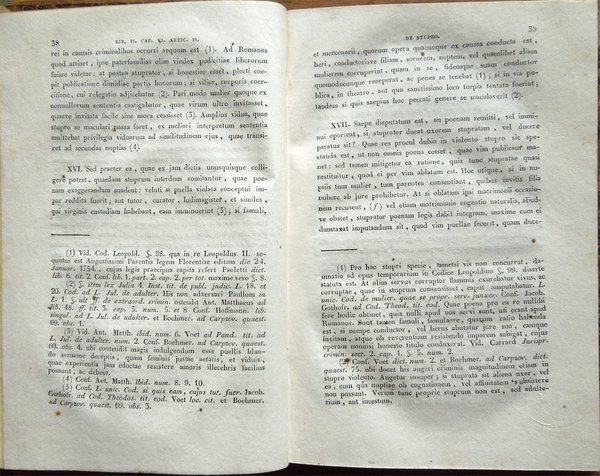 38 LIB. II. CAP. XI. ARTIC. II.
rei in causis criminalibus occurri aequum est (1). Ad Romanos
quod attinet, ipse paterfamilias olim vindex pudicitiae liberorum
fuisse videtur; at postea stuprator, si honestior esset, plecti coe-
pit publicatione dimidiae partis bonorum; si vilior, corporis coer-
citione, cui relegatio adjicebatur (2). Pari modo mulier quoque ex
nonnullorum sententia castigabatur, quae virum ultro invitasset,
quaeve invitata facile sine mora cessisset (3). Amplius vidua, quae
stupro se maculari passa foret, ex meliori interpretum sententia
amittebat privilegia viduarum ad similitudinem ejus, quae transi-
ret ad secundas nuptias (4).
XVI. Sed praeter ea, quae ex jam dictis unusquisque colli-
gere potest, quaedam stuprum interdum comitantur, quae poe-
nam exaggerandam suadent: veluti si puella violata conceptui im-
par reddita fuerit; aut tutor, curator, ludimagister, et similes,
qui virginis custodiam habebant, eam imminuerint (5); si famuli,
(1) Vid. Cod. Leopold. §. 98. qua in re Leopoldus II. se-
quutus est Augustissimi Parentis legem Florentiae editam die 24.
Januar. 1754., cujus legis praecipua capita refert Paoletti dict.
lib. 6. tit. 2. Conf. hic. 1. part. 2. cap. 2. per tot. maxime vero §. 8.
(2) §. item lex Julia 4. Inst. tit. de publ. judic. L. 18. et
20. Cod. ad L. Jul. de adulter. His non adversari Paullum in
L. 1. §. ult ff. de extraord. crimin. ostendit Ant. Matthaeus ad
lib. 48. ff. tit. 3. cap. 5. num. 5. et 8 Conf. Hoffmann. lib.
singul. ad L. Jul. de adulter. et Boehmer. ad Carpzov. quaest.
69. obs. 1.
(3) Vid. Ant. Matth. ibid. num. 6. Voet ad Pand. tit. ad
L. Jul. de adulter. num. 2. Conf. Boehmer. ad Carpzov. quaest.
69. obs. 4. ubi contendit magis indulgendum esse puellis blan-
do sermone deceptis, quam feminis justae aetatis, et viduis,
quae experientia jam edoctae resistere amoris illecebris facilius
possunt, ac debent.
(4) Conf. Ant. Matth. ibid num. 8. 9. 10.
(5) Conf. L. unic. Cod. si quis eam, cujus tut. fuer. Jacob.
Gothofr. ad Cod. Theodos. tit. eod. Voet loc. cit. et Boehmer.
ad Carpzov. quaest. 69. obs. 3.
DE STUPRO. 39
et mercenarii, quorum opera quaecumque ex caussa conducta est,
heri, conductorisve filiam, sororem, neptem, vel quamlibet aliam
mulierem corruperint, quam in se, fidemque suam conductor
quodammodo receperat, ac penes se tenebat (1); si in via pu-
blica, in theatro, aut quo sanctissimo loco turpia tentata fuerint;
laudem si quis saepius hoc peccati genere se maculaverit (2).
XVII. Saepe disputatum est, an poenam remitti, vel immi-
nui oporteat, si stuprator ducat uxorem stupratam, vel ducere
paratus sit? Quae res procul dubio in violento stupro sic spe-
ctanda est, ut non omnis poena cesset, quae vim publicam ma-
net: sed tamen mitigetur ea ratione, quia tunc stupratae quasi
restituitur, quod ei per vim ablatum est. Hoc utique, si in nu-
ptiis tum mulier, tum parentes consentiant, quibus invitis filia
nubere ab jure prohibetur. At si oblatam ipsi matrimonii occasio-
nem recusent, (f) vel etiam matrimonio cognatio naturalis, aliud-
ve obstet, stuprator poenam legis dabit integram, maxime cum ei
dumtaxat imputandum sit, quod vim puellae fecerit, quam duce-
(1) Pro hac stupri specie, tametsi vis non concurrat, da-
mnatio ad opus temporarium in Codice Leopoldino §. 99. diserte
statuta est. At olim servus corruptor flammis exurebatur vivus,
capiteque, quae in stuprum consensisset, caput amputabatur. L.
unic. Cod. de mulier. quae se propr. serv. junxer. Conf. Jacob.
Gothofr. ad Cod. Theod. tit. eod. Quae poena pro re nullisi
fere hodie obtinet, quin nulli apud nos servi sunt, uti erant apud
Romanos. Sunt tamen famuli, homulares, quarum ratio habenda
est, si nempe conductor, vel herus abutatur jure suo, eamque
invitam, atque ob reverentiam resistendo imparem subigat, cujus
operam nonnisi honesto titulo conduxerat. Vid. Carrard Jurispr.
crimin. sect. 2. cap. 4. §. 5. num. 2.
(2) Conf. Voet dict. num. 2. et Boehmer. ad Carpzov. dict.
quaest. 75. ubi docet his augeri criminis magnitudinem etiam in
stupro violento. Augetur insuper; si stuprata sit aliena uxor, vel
ea, cum qua nuptiae ob cognationem, vel affinitatem subsistere
non possunt. Verum tunc proprie stuprum non est, sed adulte-
rium, aut incestum.